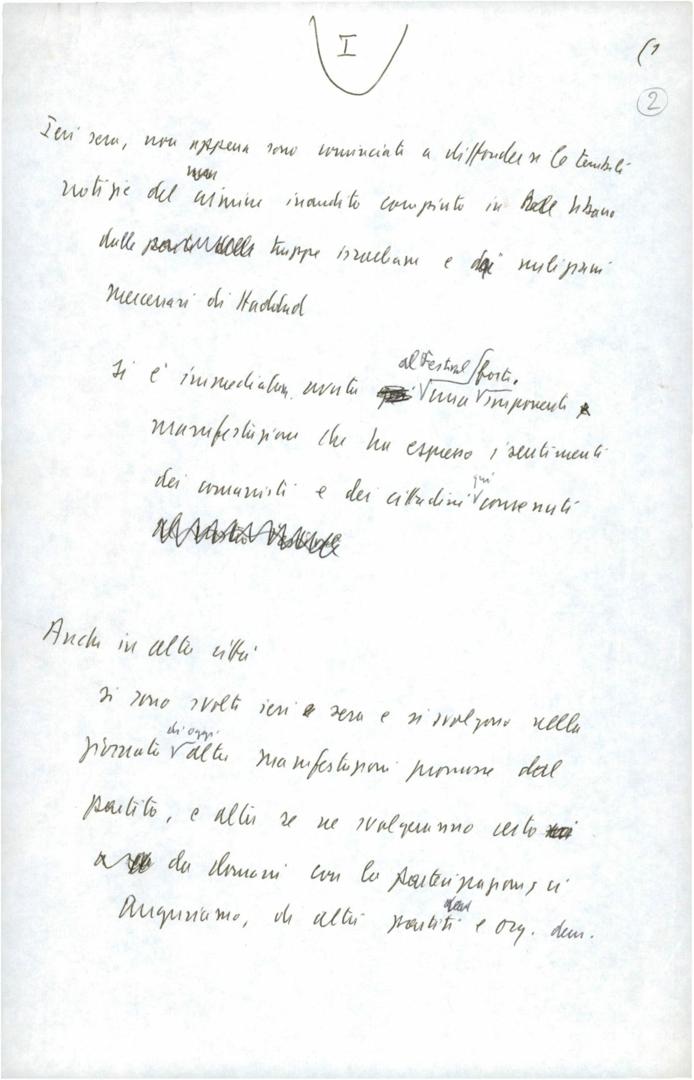 I
(1
2
Ieri sera, non appena sono cominciate a diffondersi le terribili
notizie del crimine inaudito compiuto in Libano
dalle truppe israeliane e dai miliziani
mercenari di Haddad
al Festival forte,
si è immediatam. avuta una imponente
manifestazione che ha espresso i sentimenti
qui
dei comunisti e dei cittadini convenuti
Anche in altre città
si sono svolte ieri sera e si svolgono nella
di oggi
giornata altre manifestazioni promosse dal
partito, e altre se ne svolgeranno certo
da domani con la partecipazione, ci
auguriamo, di altri partiti e org. dem.